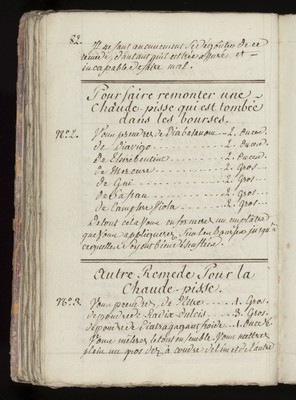 82.
Il ne faut aucunement se dégoûter de ce
remede, d'autant qu'il est très assuré et
incapable de faire mal.
Pour faire remonter une
Chaude-pisse qui est tombée
dans les bourses.
N.º 2. Vous prendrez de Diabotanum - 2. Onces.
de Diavigo ........... 2. Onces.
de Thérébentine ........ 2. Onces.
de Mercure ........... 2. Gros.
de Gui ........... 2. Gros.
de Safran ........... 2. Gros.
de Camphre ........ 2. Gros.
de tout cela Vous en formerez un emplâtre
que Vous appliquerez Sur les bourses jusqu'à
ce qu'elles Soyent bien désenflées.
Autre Remede Pour la
Chaude-pisse.
N.º 3. Vous prendrez, de Nitre ...... 1. Gros.
de poudre de Radix Dulcis .... 3. Gros.
de poudre de Diatragagant froide. 1. Once.
Vous mêlerez le tout ensemble. Vous mettrez
plein un gros dez, à coudre de l'un et de l'autre